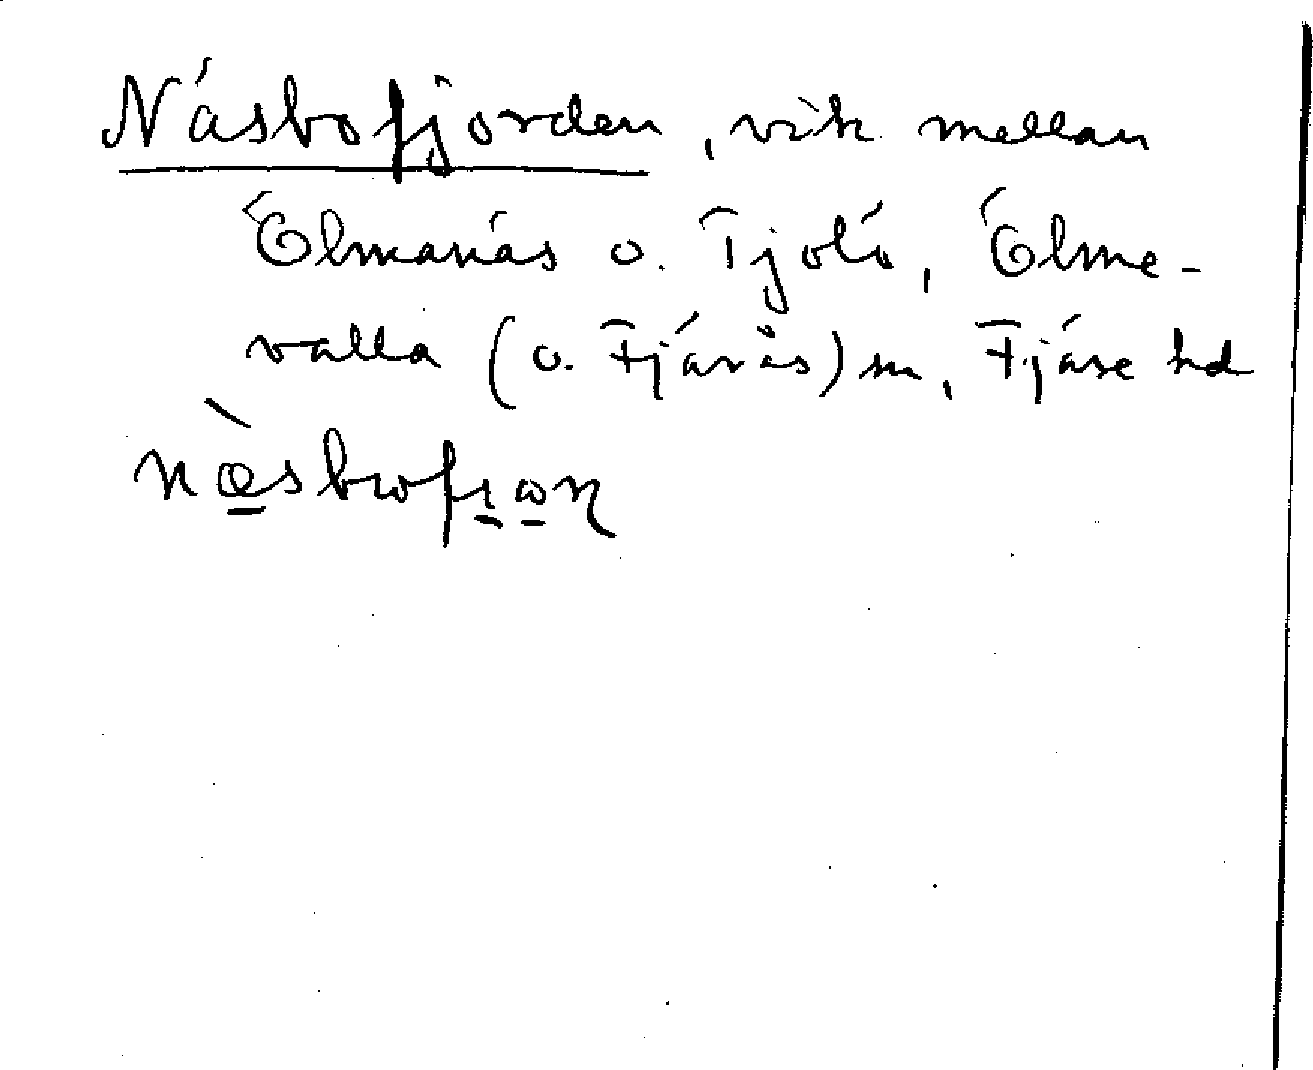 Näsbofjorden, vik mellan
Ölmanäs o. Tjolö, Ölme-
valla (o. Fjärås) sn, Fjäre hd